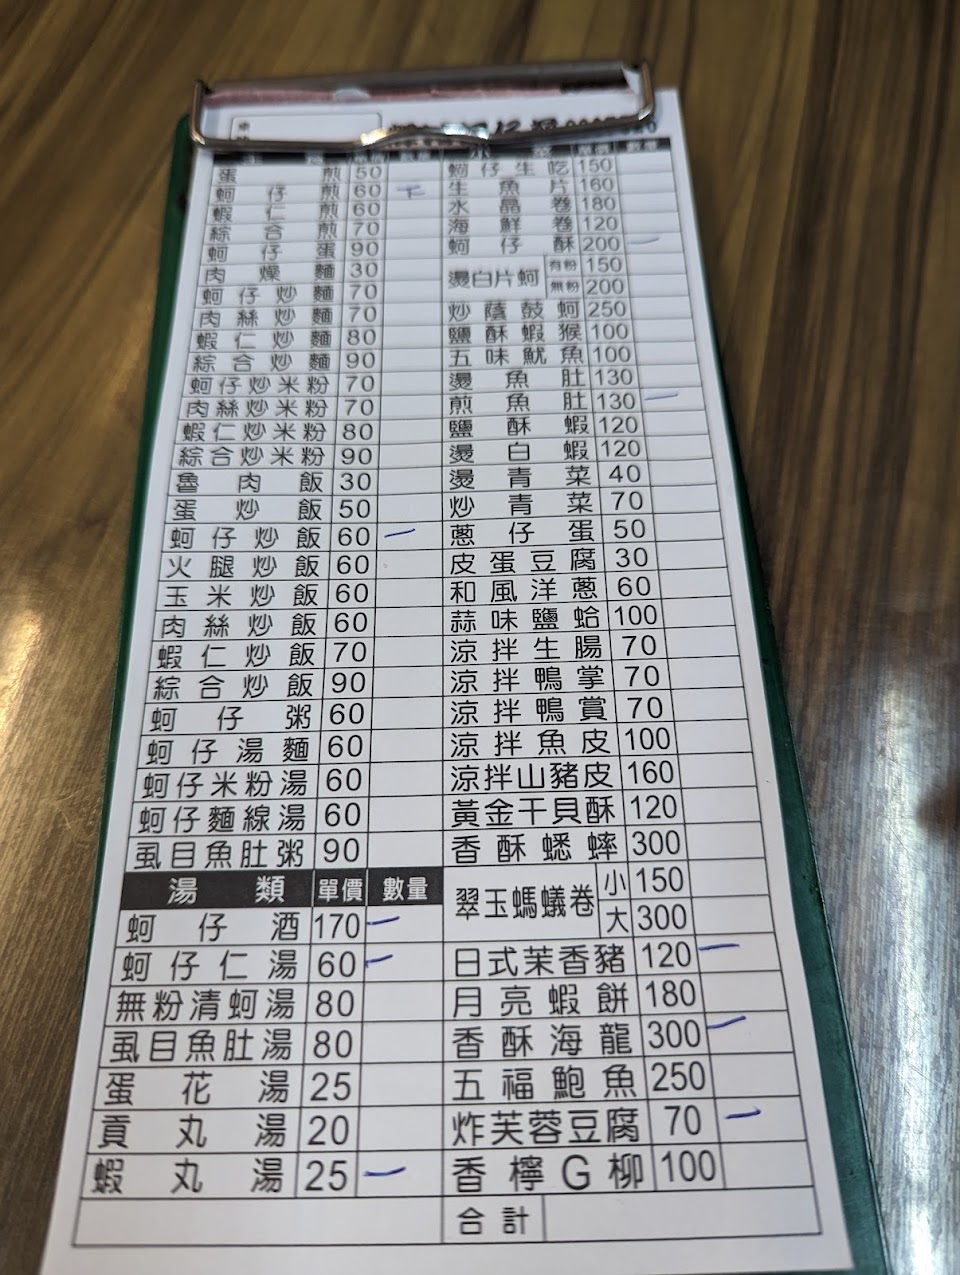 蛋煎 50
蚵仔煎 60
蝦仁煎 60
綜合煎 70
蚵仔蛋 90
肉燥麵 30
蚵仔炒麵 70
肉絲炒麵 70
蝦仁炒麵 80
綜合炒麵 90
蚵仔炒米粉 70
肉絲炒米粉 70
蝦仁炒米粉 80
綜合炒米粉 90
魯肉飯 30
蛋炒飯 50
蚵仔炒飯 60 一
火腿炒飯 60
玉米炒飯 60
肉絲炒飯 60
蝦仁炒飯 70
綜合炒飯 90
蚵仔粥 60
蚵仔湯麵 60
蚵仔米粉湯 60
蚵仔麵線湯 60
虱目魚肚粥 90
湯類 單價 數量
蚵仔酒 170 一
蚵仔仁湯 60 一
無粉清蚵湯 80
虱目魚肚湯 80
蛋花湯 25
貢丸湯 20
蝦丸湯 25 一
蚵仔生吃 150
生魚片 160
水晶卷 180
海鮮卷 120
蚵仔酥 200 一
燙白片蚵 有粉 150
無粉 200
炒蔭鼓蚵 250
鹽酥蝦猴 100
五味魷魚 100
燙魚肚 130
煎魚肚 130 一
鹽酥蝦 120
燙白蝦 120
燙青菜 40
炒青菜 70
蔥仔蛋 50
皮蛋豆腐 30
和風洋蔥 60
蒜味鹽蛤 100
涼拌生腸 70
涼拌鴨掌 70
涼拌鴨賞 70
涼拌魚皮 100
涼拌山豬皮 160
黃金干貝酥 120
香酥蟋蟀 300
翠玉螞蟻卷 小 150
大 300
日式茉香豬 120 一
月亮蝦餅 180
香酥海龍 300 一
五福鮑魚 250
炸芙蓉豆腐 70 一
香檸G柳 100
合計